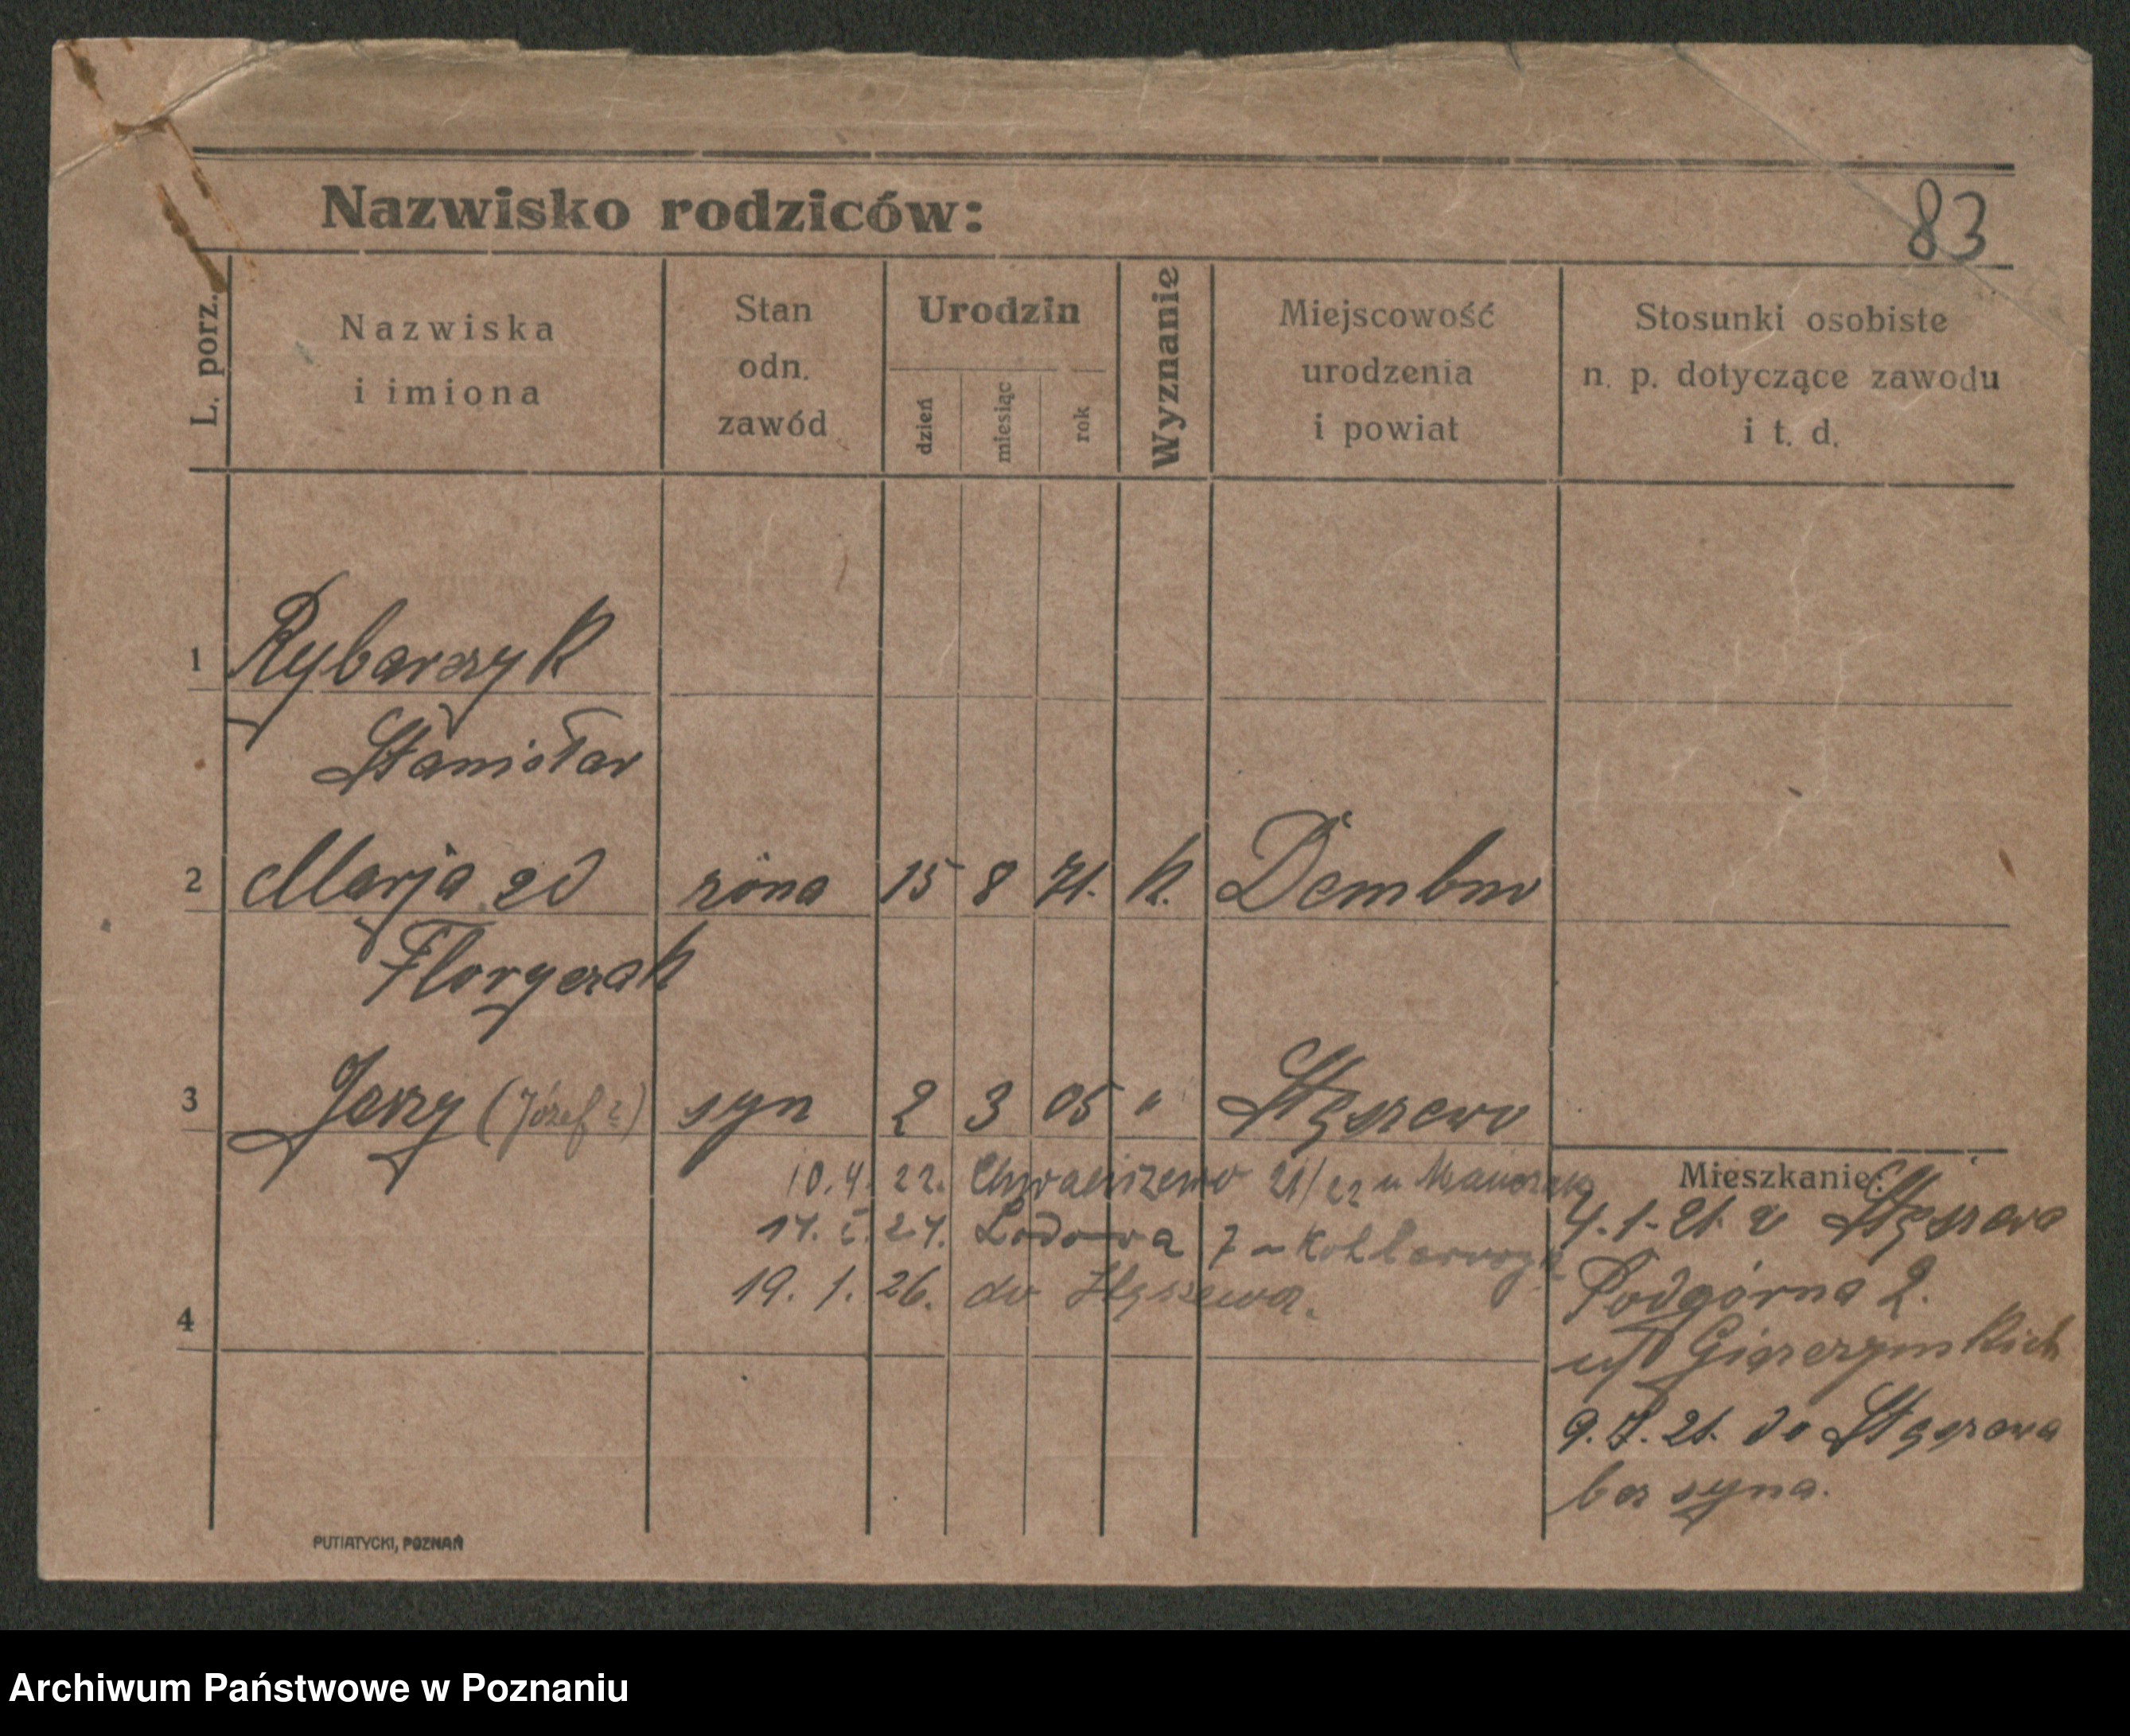 Nazwisko rodziców:
83
L. porz.
Nazwiska
i imiona
Stan
odn.
zawód
Urodzin
dzień
miesiąc
rok
Wyznanie
Miejscowość
urodzenia
i powiat
Stosunki osobiste
n. p. dotyczące zawodu
i t. d.
1 Rybarczyk
Stanisław
2 Marja zd żona 15 8 71. k. Dembno
Florczak
3 Jerzy (Józef?) syn 2 3 05 " Stęszewo
10.4.22. Chwaliszewo 21/22 u
Mieszkanie:
4.1.21. z Stęszewa
19.1.26. do Stęszewa.
Podgórna 2.
4
9.7.21. do Stęszewa
bez syna.
PUTIATYCKI, POZNAŃ
Archiwum Państwowe w Poznaniu